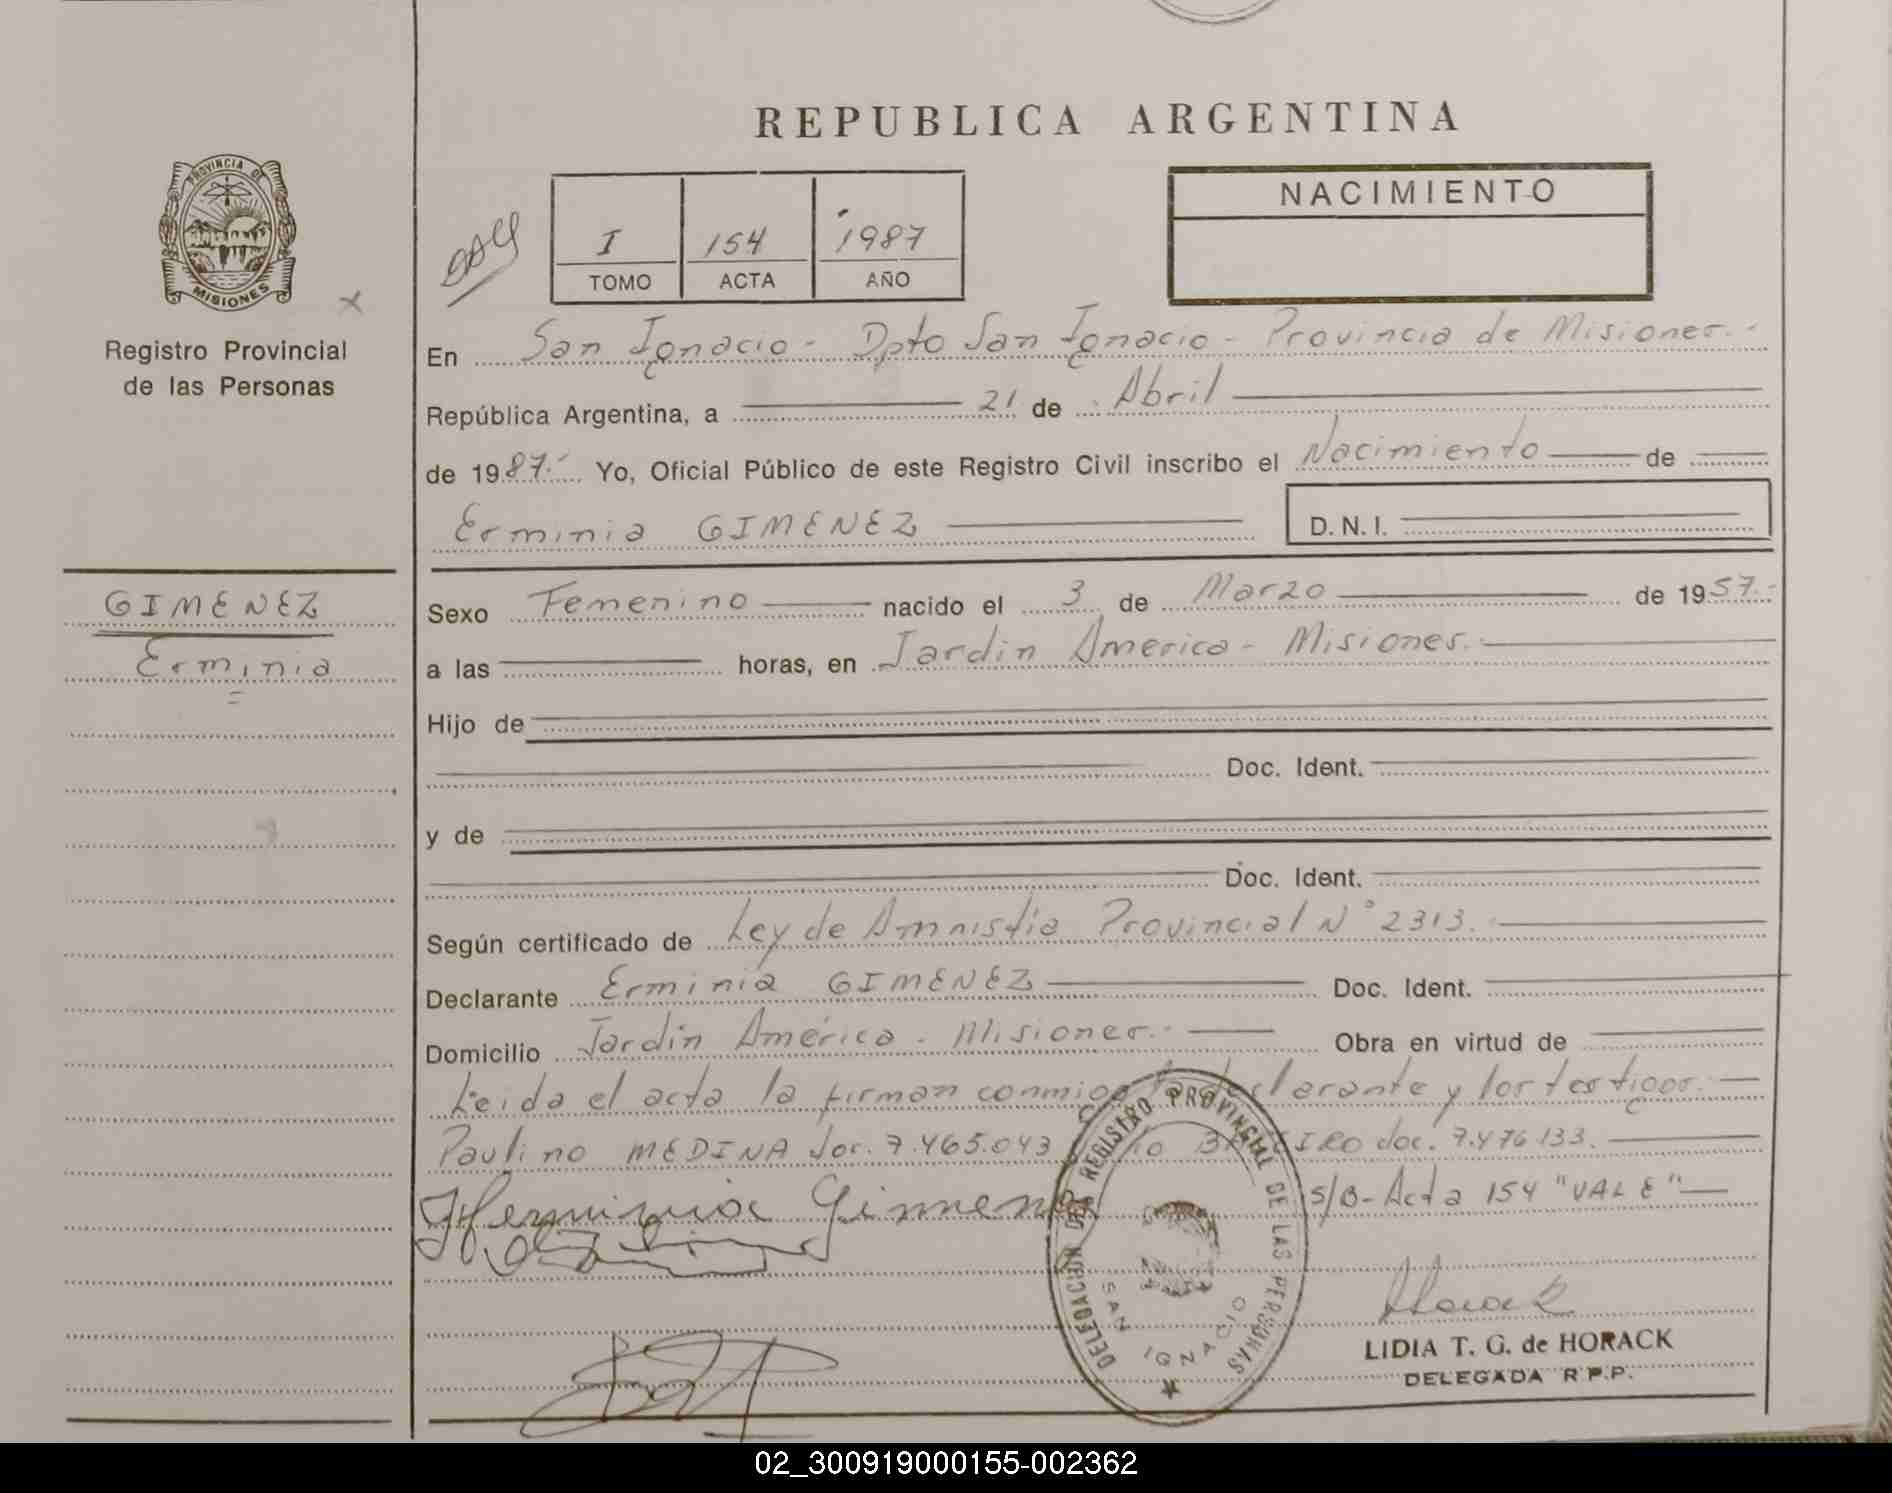 REPUBLICA ARGENTINA
PROVINCIA DE
MISIONES
Registro Provincial
de las Personas
I 154 1987
TOMO ACTA AÑO
NACIMIENTO
En San Ignacio - Dpto San Ignacio - Provincia de Misiones.-
República Argentina, a 21 de Abril
de 1987.- Yo, Oficial Público de este Registro Civil inscribo el Nacimiento de
Erminia GIMENEZ D.N.I.
GIMENEZ
Erminia
Sexo Femenino nacido el 3 de Marzo de 1957.-
a las horas, en Jardin America - Misiones.-
Hijo de
Doc. Ident.
y de
Doc. Ident.
Según certificado de Ley de Amnistia Provincial N° 2313.-
Declarante Erminia GIMENEZ Doc. Ident.
Domicilio Jardin América - Misiones.- Obra en virtud de
Leida el acta la firman conmigo la declarante y los testigos.-
Paulino MEDINA doc. 7.465.043 doc. 7.476.133.
Herminia Gimenez S/B- Acta 154 "VALE"
DELEGACION DEL REGISTRO PROVINCIAL DE LAS PERSONAS
SAN IGNACIO
Horack
LIDIA T. G. de HORACK
DELEGADA R.P.P.
02_300919000155-002362